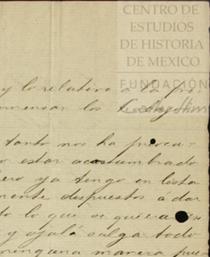 CENTRO DE
ESTUDIOS
DE HISTORIA
DE MEXICO
FUNDACIÓN
y lo relativo a la
comenzar los
tanto nos ha
estar acostumbrado
ero ya tengo en lista
mente despuestos a dar
to lo que se quiera
y ojalá salga todo
ninguna manera